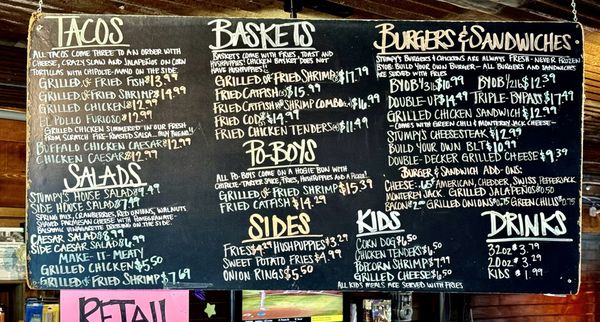 TACOS
ALL TACOS COME THREE TO AN ORDER WITH
CHEESE, CRAZY SLAW AND JALAPEÑOS ON CORN
TORTILLAS WITH CHIPOLTE-MAYO ON THE SIDE.
GRILLED OR FRIED FISH $13.99
GRILLED OR FRIED SHRIMP $14.99
GRILLED CHICKEN $12.99
EL POLLO FURIOSO $12.99
GRILLED CHICKEN SIMMERED IN OUR FRESH
FROM SCRATCH FIRE-ROASTED SALSA
BUFFALO CHICKEN CAESAR $12.99
CHICKEN CAESAR $12.99
SALADS
STUMPY'S HOUSE SALAD $9.49
SIDE HOUSE SALAD $7.49
SPRING MIX, CRANBERRIES, RED ONIONS, WALNUTS,
SHAVED PARMESAN CHEESE WITH POMEGRANATE-
BALSAMIC VINAIGRETTE DRESSING ON THE SIDE.
CAESAR SALAD $8.99
SIDE CAESAR SALAD $6.99
MAKE-IT-MEATY
GRILLED CHICKEN $5.50
GRILLED OR FRIED SHRIMP $7.69
BASKETS
BASKETS COME WITH FRIES, TOAST AND
HUSHPUPPIES! (CHICKEN BASKET DOES NOT
HAVE HUSHPUPPIES!!)
GRILLED OR FRIED SHRIMP $17.79
FRIED CATFISH (2) $15.99
FRIED CATFISH OR SHRIMP COMBO $16.99
FRIED COD $14.99
FRIED CHICKEN TENDERS $11.99
PO-BOYS
ALL PO-BOYS COME ON A HOGIE BUN WITH
CHIPOLTE-TARTER SAUCE, FRIES, HUSHPUPPIES AND A PICKLE!
GRILLED OR FRIED SHRIMP $15.39
FRIED CATFISH $14.29
SIDES
FRIES $4.29 HUSHPUPPIES $3.29
SWEET POTATO FRIES $4.99
ONION RINGS $5.50
BURGERS & SANDWICHES
STUMPY'S BURGERS & CHICKENS ARE ALWAYS FRESH - NEVER FROZEN
BYOB: BUILD YOUR OWN BURGER - ALL BURGERS AND SANDWICHES
ARE SERVED WITH FRIES
BYOB 1/3 LB $10.99 BYOB 1/2 LB $12.39
DOUBLE-UP $14.99 TRIPLE-BYPASS $17.99
GRILLED CHICKEN SANDWICH $12.99
-COMES WITH GREEN CHILI & MONTEREY JACK CHEESE-
STUMPY'S CHEESESTEAK $12.99
BUILD YOUR OWN BLT $10.99
DOUBLE-DECKER GRILLED CHEESE $9.39
BURGER & SANDWICH ADD-ONS:
CHEESE: AMERICAN, CHEDDER, SWISS, PEPPERJACK
MONTEREY JACK GRILLED JALAPEÑOS $0.50
BACON GRILLED ONIONS $0.75 GREEN CHILIS $0.75
KIDS
CORN DOG $6.50
CHICKEN TENDERS $6.50
POPCORN SHRIMP $7.99
GRILLED CHEESE $6.50
ALL KIDS MEALS ARE SERVED WITH FRIES
DRINKS
32oz $3.79
20oz $3.29
KIDS $1.99
RETAIL